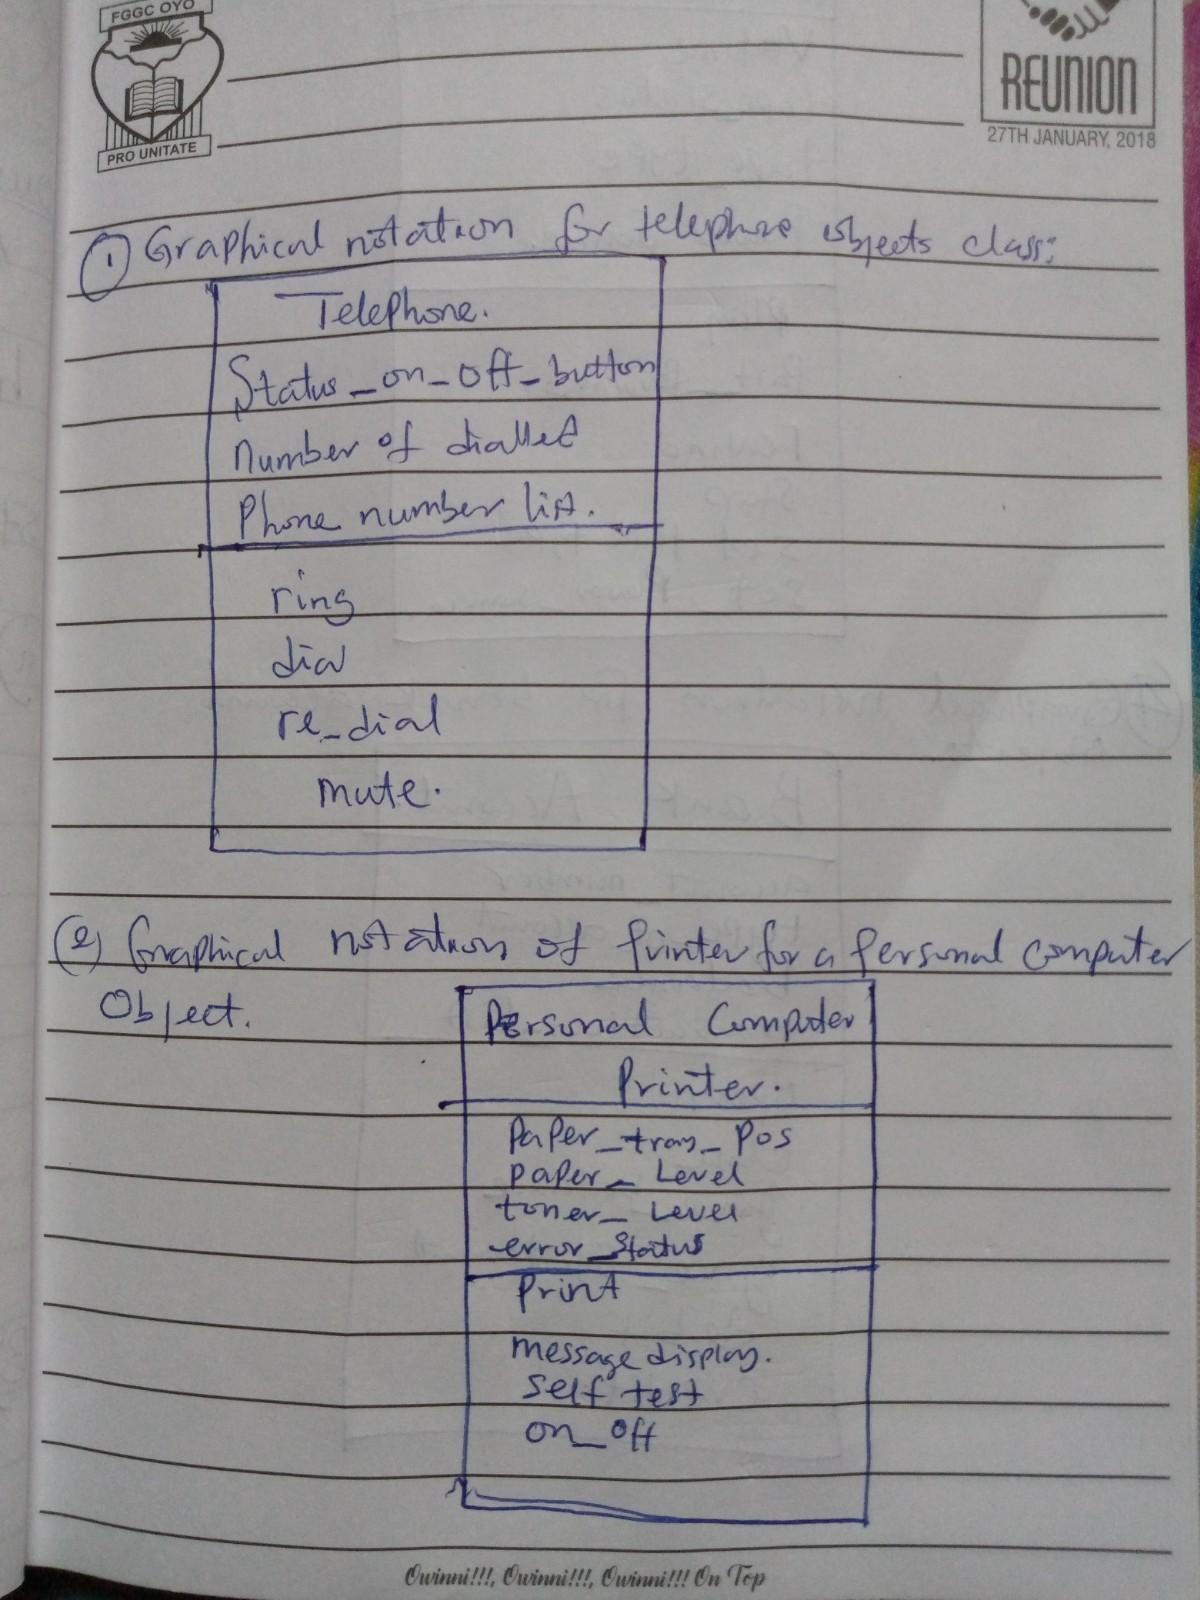 FGGC OYO
PRO UNITATE
REUNION
27TH JANUARY, 2018
(1) Graphical notation for telephone objects class:
Telephone.
Status_on_off_button
Number of dialled
Phone number list.
ring
dial
re_dial
mute.
(2) Graphical notation of Printer for a Personal Computer
Object.
Personal Computer
Printer.
Paper_tray_Pos
paper_Level
toner_Level
error_Status
Print
message display.
self test
on_off
Owinni!!!, Owinni!!!, Owinni!!! On Top